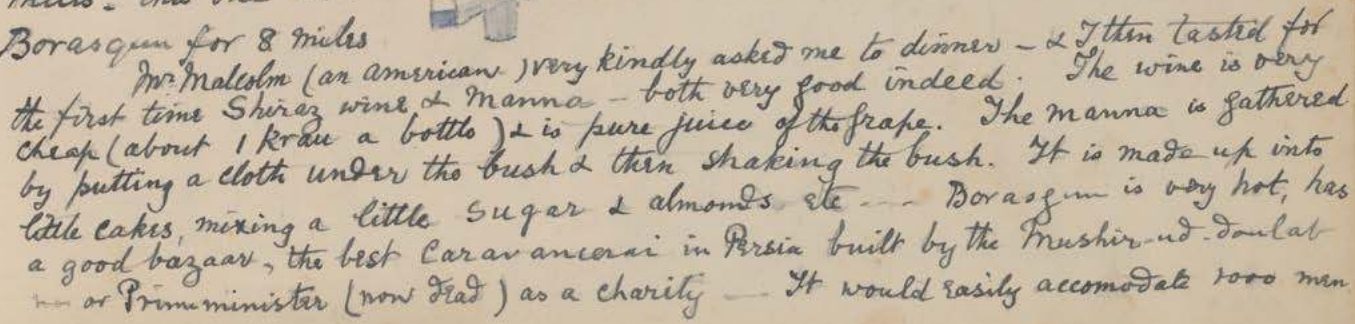 Borasgun for 8 miles
Mr. Malcolm (an american) very kindly asked me to dinner - & I then tasted for
the first time Shiraz wine & Manna - both very good indeed. The wine is very
cheap (about 1 kran a bottle) & is pure juice of the grape. The manna is gathered
by putting a cloth under the bush & then shaking the bush. It is made up into
little cakes, mixing a little sugar & almonds etc --- Borasgun is very hot, has
a good bazaar, the best Caravancerai in Persia built by the Mushir-ud-doulat
or Prime minister (now dead) as a charity - It would easily accomodate 1000 men